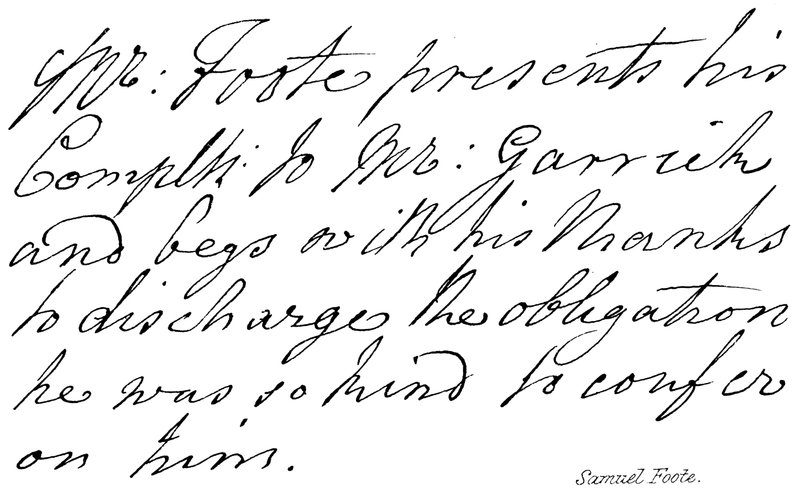 Mr: Foote presents his
Complts: to Mr: Garrick
and begs with his thanks
to discharge the obligation
he was so kind to confer
on him.
Samuel Foote.